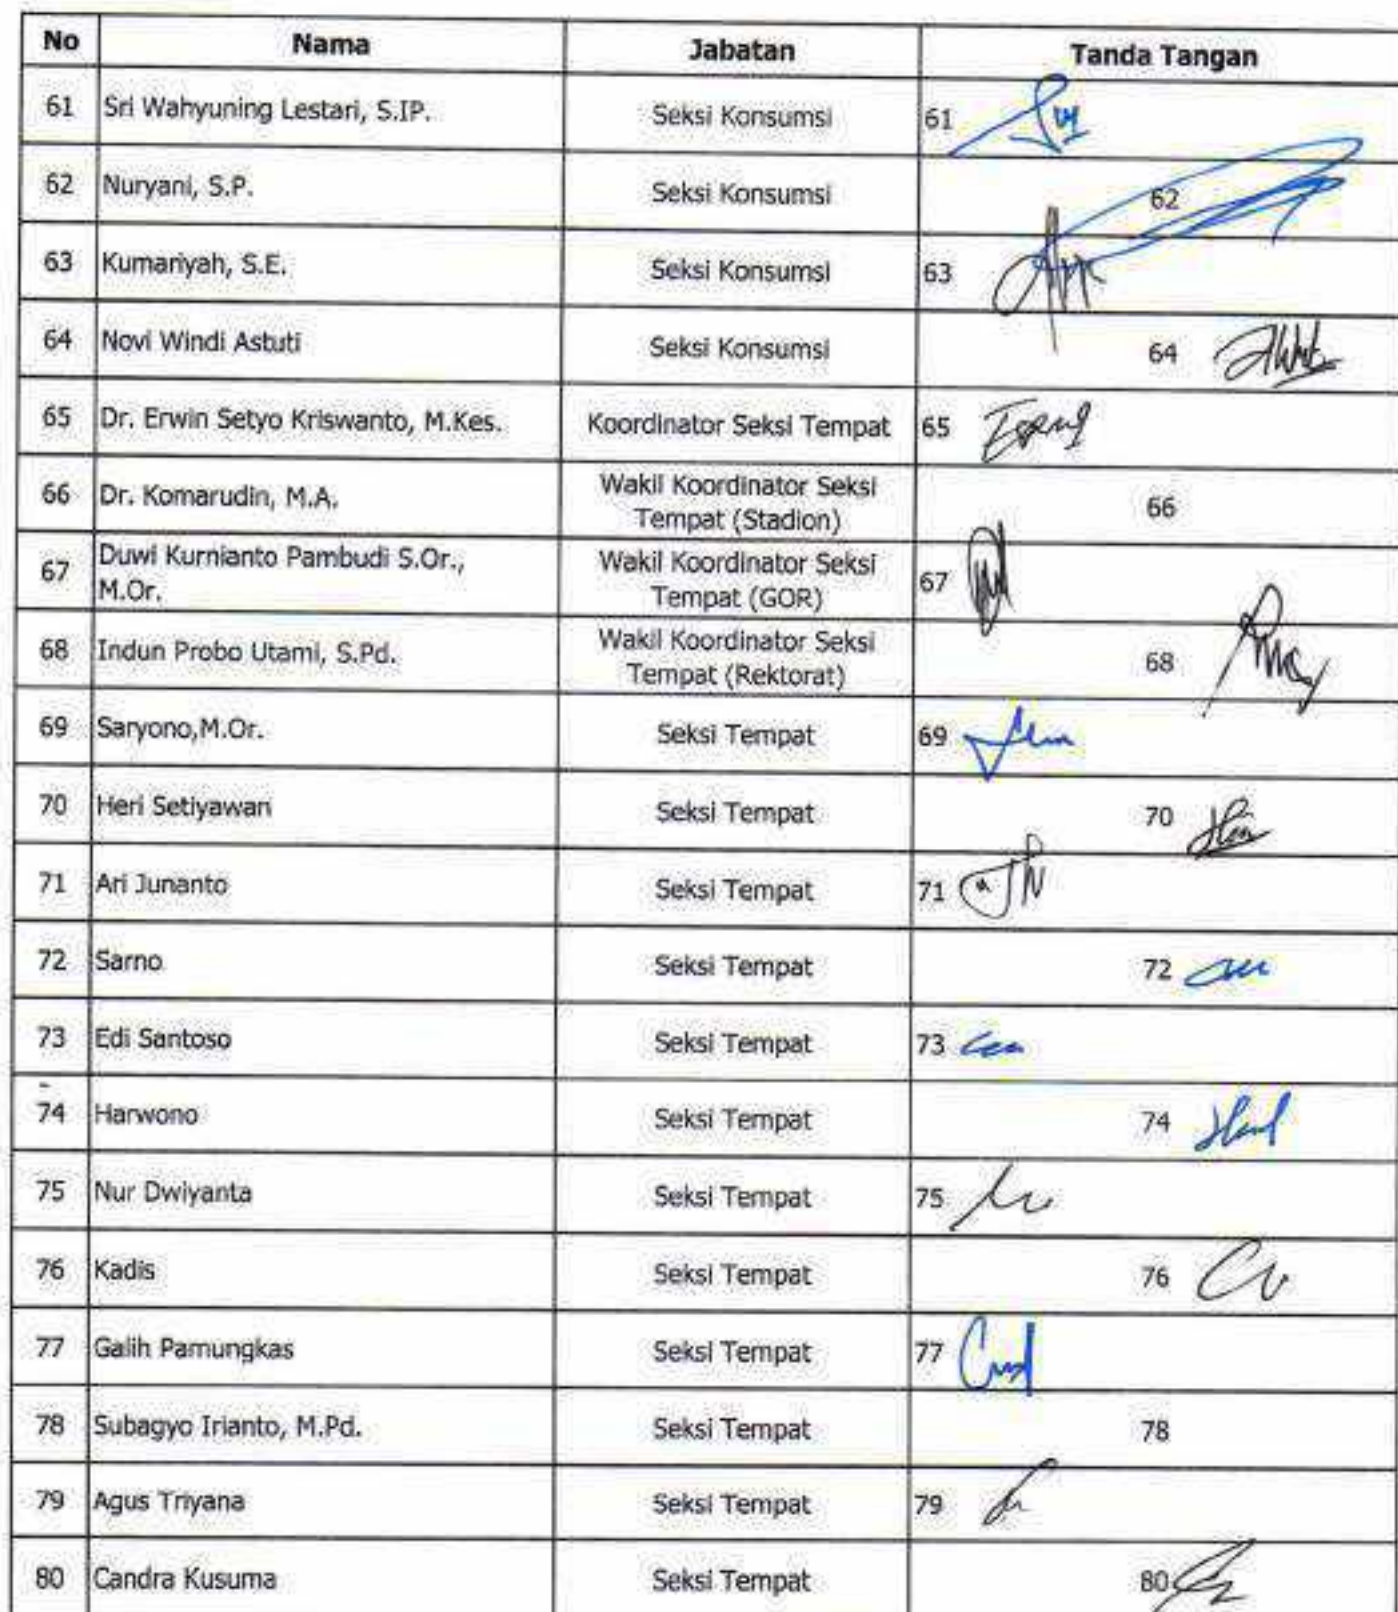 No Nama Jabatan Tanda Tangan
61 Sri Wahyuning Lestari, S.IP. Seksi Konsumsi 61
62 Nuryani, S.P. Seksi Konsumsi 62
63 Kumariyah, S.E. Seksi Konsumsi 63
64 Novi Windi Astuti Seksi Konsumsi 64
65 Dr. Erwin Setyo Kriswanto, M.Kes. Koordinator Seksi Tempat 65
66 Dr. Komarudin, M.A. Wakil Koordinator Seksi
Tempat (Stadion) 66
67 Duwi Kurnianto Pambudi S.Or.,
M.Or. Wakil Koordinator Seksi
Tempat (GOR) 67
68 Indun Probo Utami, S.Pd. Wakil Koordinator Seksi
Tempat (Rektorat) 68
69 Saryono,M.Or. Seksi Tempat 69
70 Heri Setiyawan Seksi Tempat 70
71 Ari Junanto Seksi Tempat 71
72 Sarno Seksi Tempat 72
73 Edi Santoso Seksi Tempat 73
74 Harwono Seksi Tempat 74
75 Nur Dwiyanta Seksi Tempat 75
76 Kadis Seksi Tempat 76
77 Galih Pamungkas Seksi Tempat 77
78 Subagyo Irianto, M.Pd. Seksi Tempat 78
79 Agus Triyana Seksi Tempat 79
80 Candra Kusuma Seksi Tempat 80